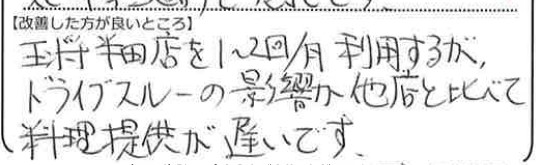 【改善した方が良いところ】
半田店を1~2回/月利用するが、
ドライブスルーの影響か他店と比べて
料理提供が遅いです。